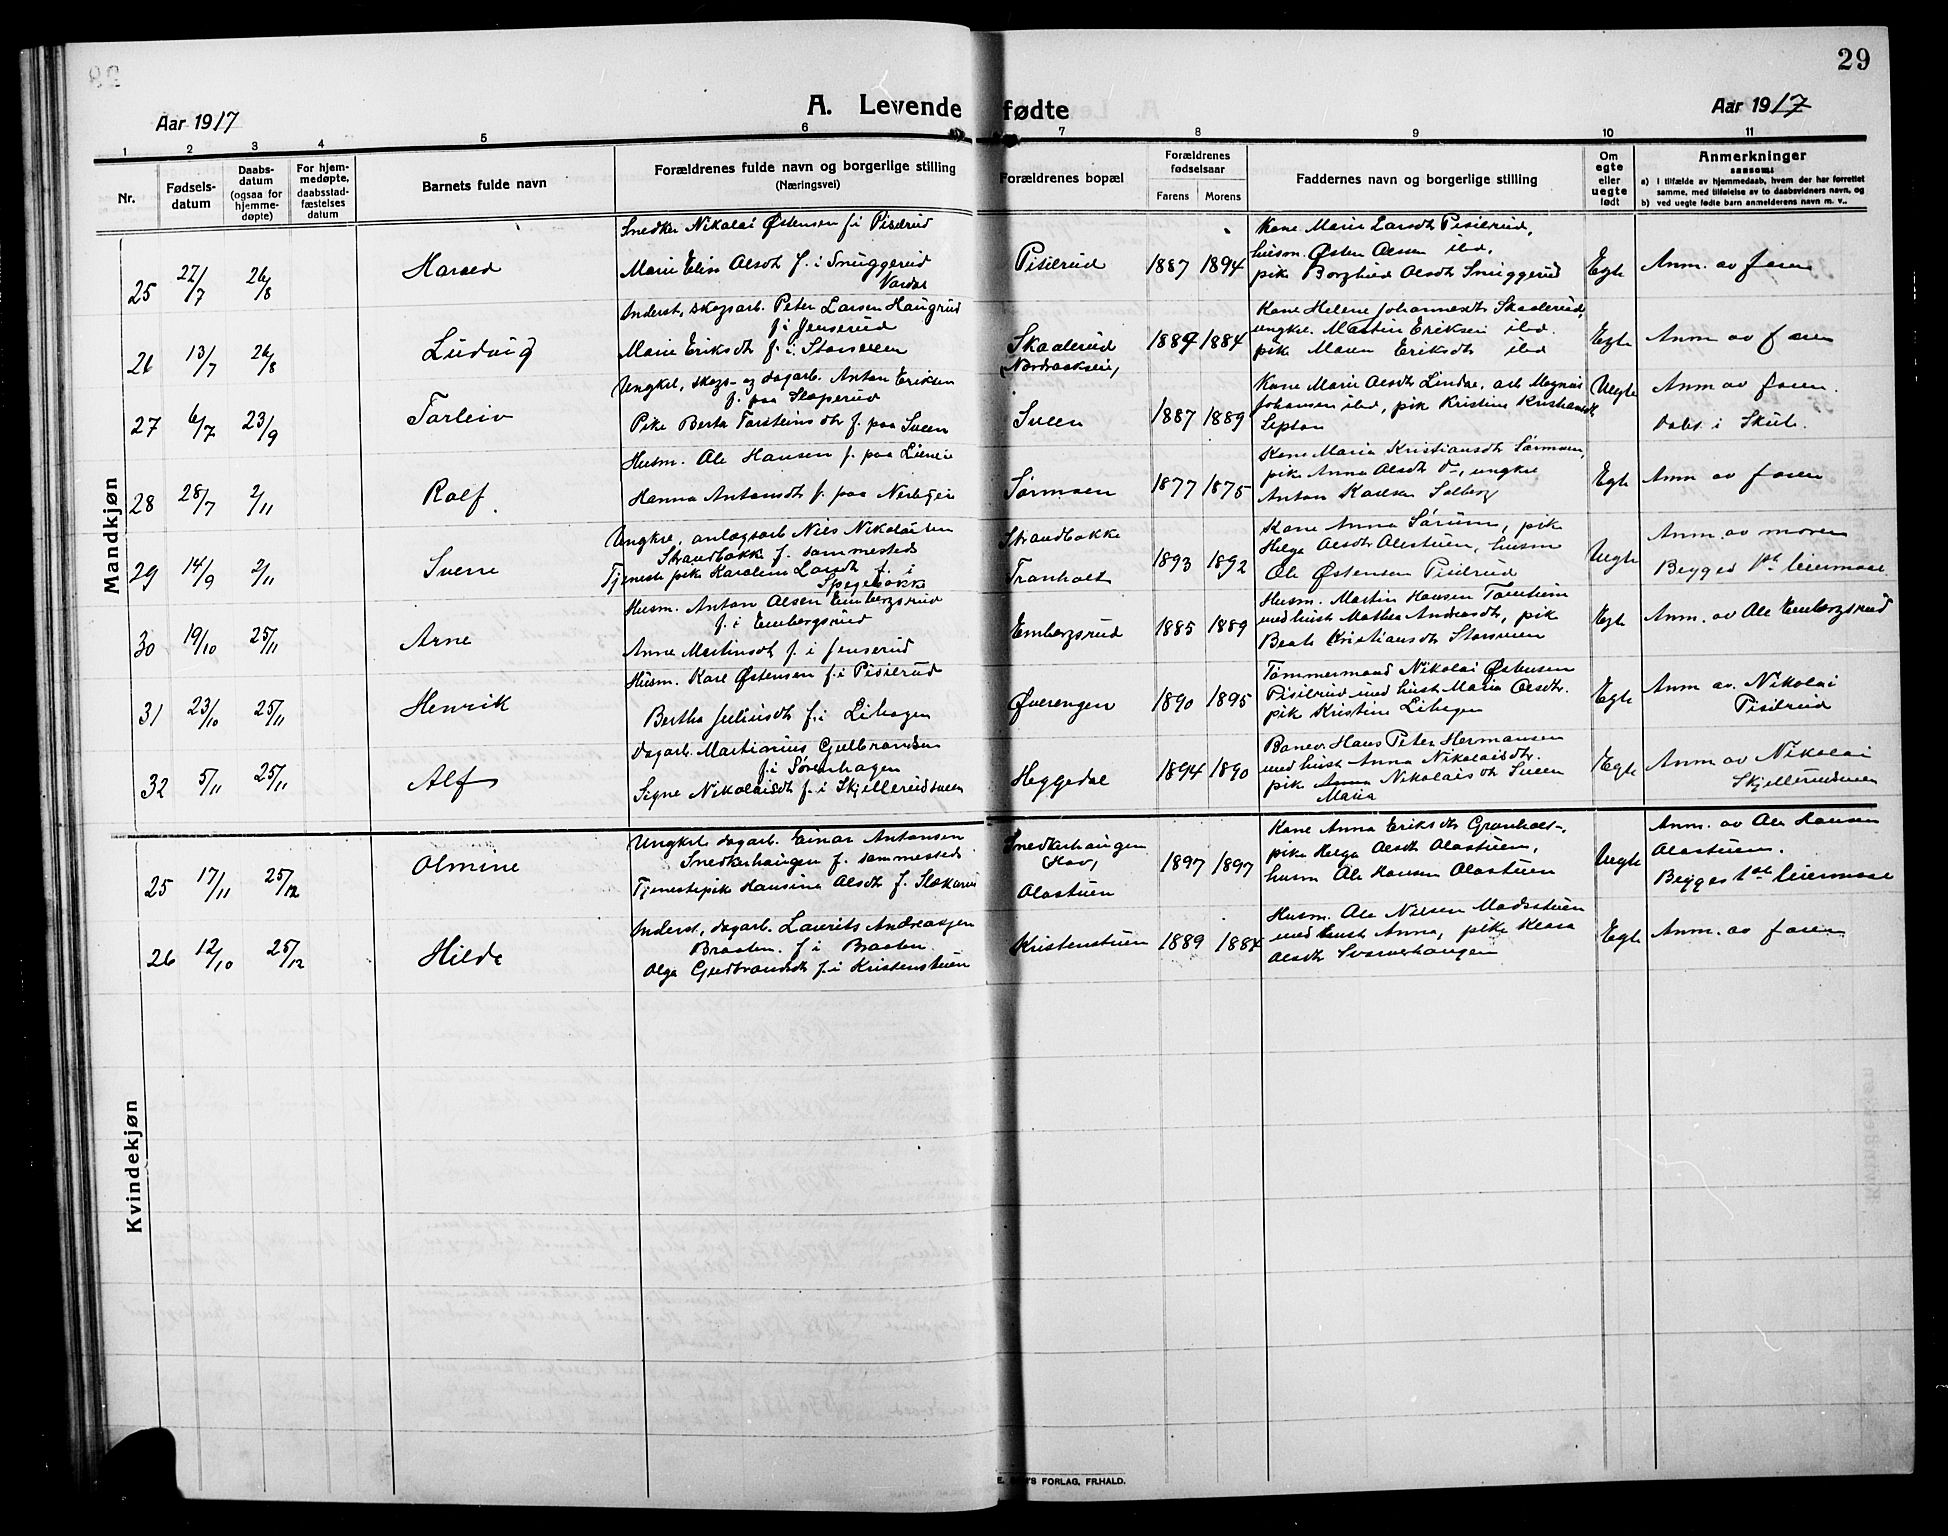 29
A. Levende fødte
Aar 1917
Aar 1917
1 2 3 4 5 6 7 8 9 10 11
Nr.
Fødsels-
datum
Daabs-
datum
(ogsaa for
hjemme-
døpte)
For hjem-
medøpte,
daabsstad-
fæstelses
datum
Barnets fulde navn
Forældrenes fulde navn og borgerlige stilling
(Næringsvei)
Forældrenes bopæl
Forældrenes
fødselsaar
Farens Morens
Faddernes navn og borgerlige stilling
Om
egte
eller
uegte
født
Anmerkninger
saasom:
a) i tilfælde av hjemmedaab, hvem der har forrettet
samme, med tilføielse av to daabsvidners navn, og
b) ved uegte fødte barn anmelderens navn m. v..
Mandkjøn
25 27/7 26/8 Harald
Snedker Nikolai Østensen f. i Pisilrud
Marie Elise Olsdt f. i Snuggerud
Pisilrud 1887 1894
Kone Marie Larsdt Pisilrud,
husm. Østen Olsen ibd,
pik Borghild Olsdt Snuggerud
Egte Anm. av faren
26 13/7 26/8 Ludvig
Inderst, skogsarb. Peter Larsen Haugrud
f. i Jenserud
Marie Eriksdt f. i Storsveen
Skaalerud 1884
Kone Helene Johannesdt Skaalerud,
ungkr. Martin Eriksen ibd.
pik Maren Eriksdt ibd
Egte Anm av faren
27 6/7 23/9 Torleiv
Ungkel, skogs- og dagarb. Anton Eriksen
f. paa Sloperud
Pike Berta Torsteinsdt f. paa Sveen
Sveen 1887 1889
Kone Marie Olsdt Lindal, arb Magnus
Johansen ibd, pik Kristine Kristiansdt
Uegte Anm av faren.
Døbt i Skute.
28 28/7 2/11 Rolf
Husm. Ole Hansen f. paa Lieneie
Hanna Antonsdt f. paa
Sørmoen 1877 1875
Kone Maria Kristiansdt Sørmoen,
pik Anna Olsdt do, ungkr
Anton Karlsen Solberg
Egte Anm av faren
29 14/9 2/11 Sverre
Ungkr, anlægsarb Nils Nikolaisen
Strandbakke f. sammesteds
Tjeneste pik Karoline Larsdt f. i
Strandbakke
Tranholt 1893 1892
Kone Anna Sørum, pik
Helga Olsdt Olastuen, husm
Ole Østensen Pisilrud
Uegte Anm. av moren
Begges 1ste leiermaal
30 19/10 25/11 Arne
Husm. Anton Olsen Embergsrud
f. i Embergsrud
Anne Martinsdt f. i Jenserud
Embergsrud 1885 1889
Husm. Martin Hansen
med hust Mathea Andersdt, pik
Beate Kristiansdt Storsveen
Egte Anm. av Ole Embergsrud
31 23/10 25/11 Henrik
Husm. Karl Østensen f. i Pisilrud
Bertha Juliusdt f. i Lihagen
Øverengen 1890 1895
Tømmermand Nikolai Østensen
Pisilrud med hust Maria Olsdt.
pik Kristine Lihagen
Egte Anm av. Nikolai
Pisilrud
32 5/11 25/11 Alf
Dagarb. Martinius Gulbrandsen
f. i Sørenhagen
Signe Nikolaisdt f. i Skjellerudsveen
Heggedal 1894 1890
Banev. Hans Peter Hermansen
med hust Anna Nikolaisdt.
pik Anna Nikolaisdt Sveen
Maria
Egte Anm av Nikolai
Skjellerudsveen
Kvindekjøn
25 17/11 25/12 Olmine
Ungkel dagarb. Einar Antonsen
Snedkerhaugen f. sammesteds
Tjenestepik Hansine Olsdt f.
Snedkerhaugen
Hov,
Olastuen 1897 1897
Kone Anna Eriksdt Granholt,
pike Helga Olsdt Olastuen,
husm Ole Hansen Olastuen
Uegte Anm. av Ole Hansen
Olastuen.
Begges 1ste leiermaal
26 12/10 25/12 Hilda
Inderst, dagarb. Laurits Andreassen
Braaten. f. i Braaten.
Olga Gulbrandsdt f. i Kristenstuen
Kristenstuen 1889 1884
Husm. Ole Nilsen Madsstuen
med hust Anna, pike Klara
Olsdt Svarverhaugen
Egte Anm. av faren
FORLAG, FR.HALD.